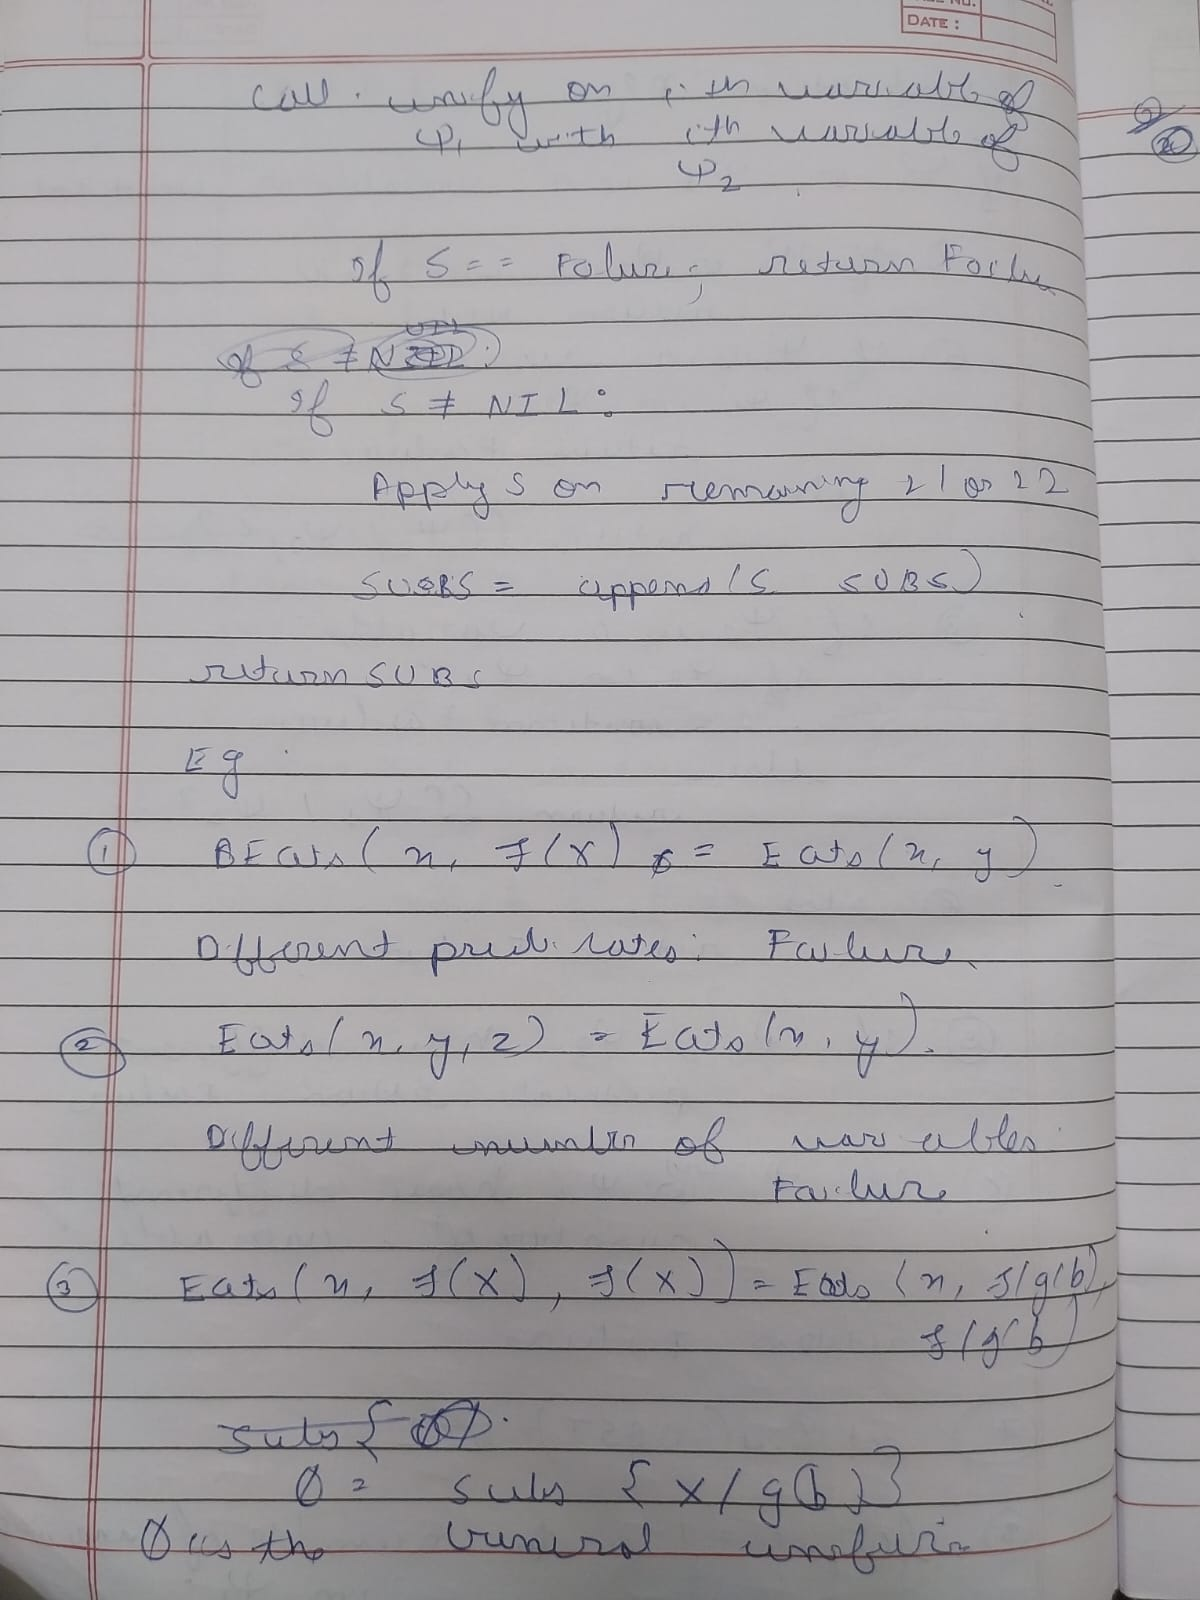 DATE :
Call unify on ith variable of
Ψ1 with ith variable of
Ψ2
If S == Falure; return Failu
If S ≠ NIL :
Apply S on remaining L1 or L2
SUBS = append (S SUBS)
return SUBS
Eg
① BEats ( x, f(x) = Eats (x, y)
Different predicates: Failure
② Eats (x, y, z) = Eats (x, y).
Different number of variables
Failure
③ Eats (x, f(x), f(x)) = Eats (x, f(g(b),
f(g(b)
Subs {
Ø = subs { x/g(b)}
Ø is the general unifier